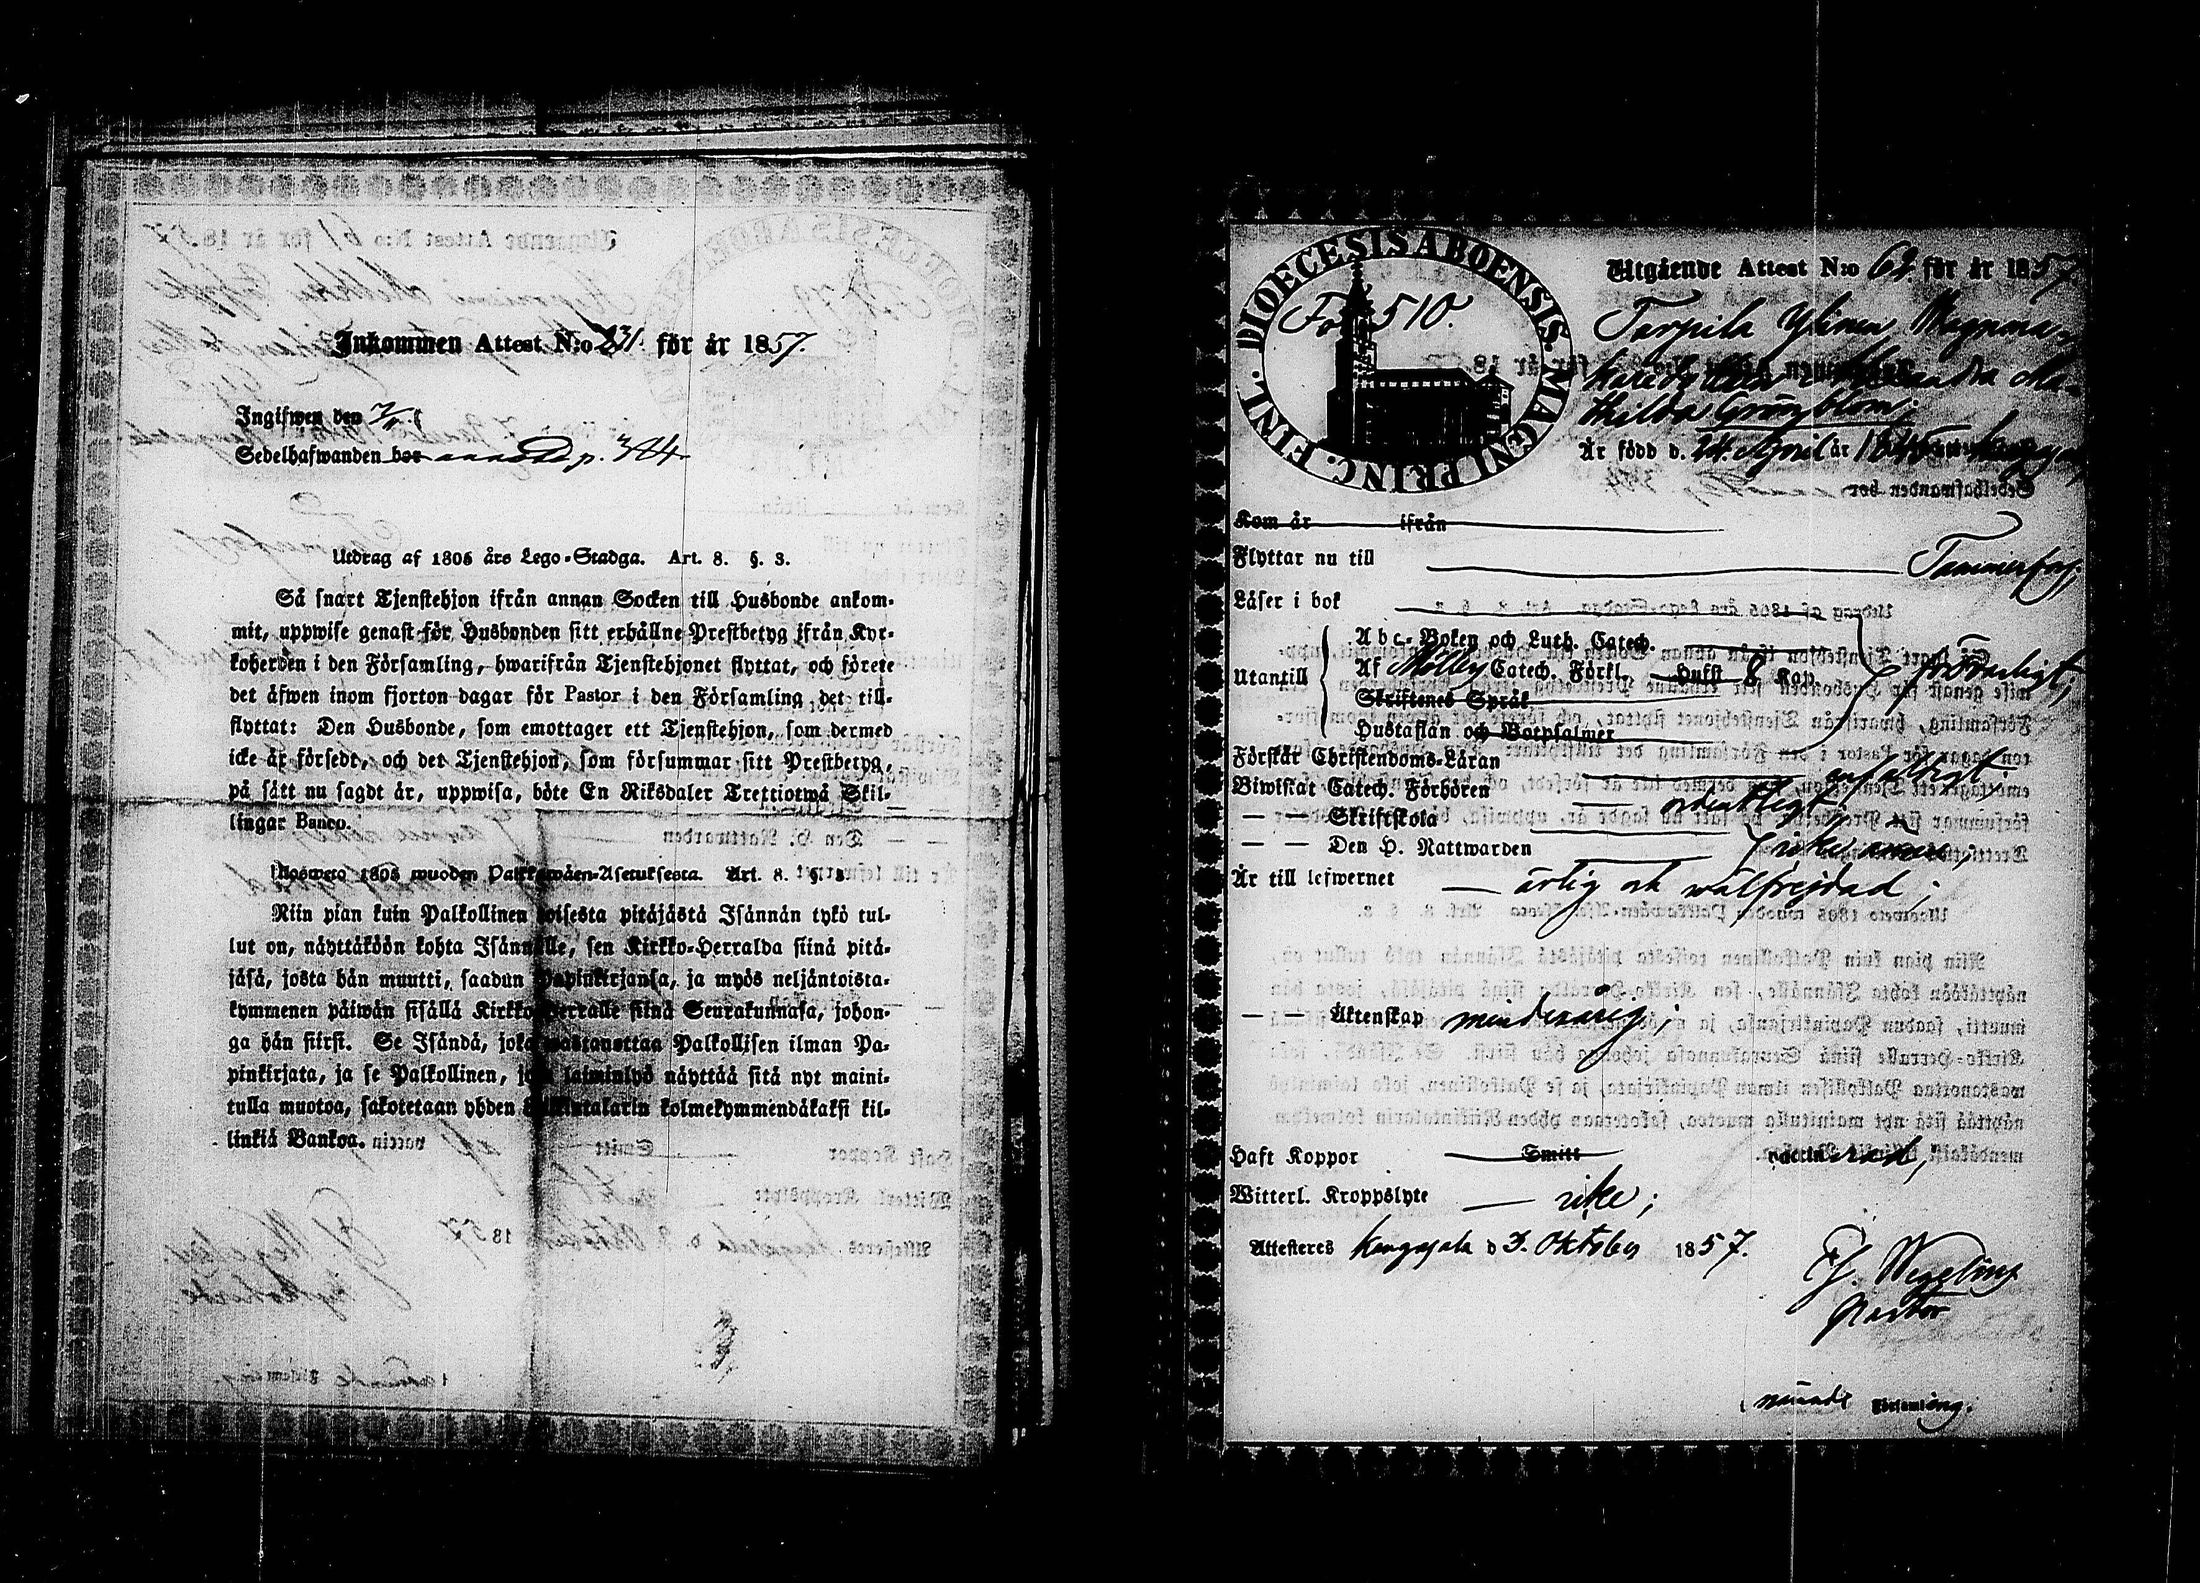 Inkommen Attest N:o 231. för år 1857.
Ingifwen den 7/11
Sedelhafwanden bor p. 384
Utdrag af 1805 års Lego-Stadga. Art. 8. §. 3.
Så snart Tjenstehjon ifrån annan Socken till Husbonde ankom-
mit, uppwise genast för Husbonden sitt erhållne Prestbetyg ifrån Kyr-
koherden i den Församling, hwarifrån Tjenstehjonet flyttat, och förete
det äfwen inom fjorton dagar för Pastor i den Församling det till-
flyttat: Den Husbonde, som emottager ett Tjenstehjon, som dermed
icke är försedt, och det Tjenstehjon, som försummar sitt Prestbetyg,
på sätt nu sagdt är, uppwisa, böte En Riksdaler Trettiotwå Skil-
lingar Banco.
Ulosweto 1805 wuoden Palkkawäen-Asetuksesta. Art. 8. §. 3.
Niin pian kuin Palkollinen toisesta pitäjästä Isännän tykö tul-
lut on, näyttäköön kohta Isännälle, sen Kirkko-Herralda siinä pitä-
jäsä, josta hän muutti, saadun Papinkirjansa, ja myös neljäntoista-
kymmenen päiwän sisällä Kirkko-Herralle siinä Seurakunnasa, johon-
ga hän siirsi. Se Isändä, joka wastanottaa Palkollisen ilman Pa-
pinkirjata, ja se Palkollinen, joka laiminlyö näyttää sitä nyt maini-
tulla muotoa, sakotetaan yhden Riikintalarin kolmekymmendäkaksi kil-
linkiä Bankoa.
DIOECESIS ABOENSIS. MAGNI PRINC. FINL.
Fol 510.
Utgående Attest N:o 62. för år 1857
Tarpila Ylinen
Mathilda Grönblom;
Är född d. 24. April år 1845
Kom år ifrån
Flyttar nu till Tammerfors;
Läser i bok
Utantill
Abc-Boken och Luth. Catech.
Af Möllers Catech. Förkl. Hufst 8 Kap
Skriftenes Språk
Hustaflan och Botpsalmer
försvarligt;
Förstår Christendoms-Läran enfaldigt;
Biwistat Catech. Förhören ordentligt;
— — Skriftskola
— — Den H. Nattwarden icke ännu;
Är till lefwernet ärlig och wälfrejdad;
— — Äktenskap minderårig;
Haft Koppor Smitt vaccinerad,
Witterl. Kroppslyte icke;
Attesteres Kangasala d 3. Oktober 1857.
Wegelius
Pastor
i nämnde Församling.